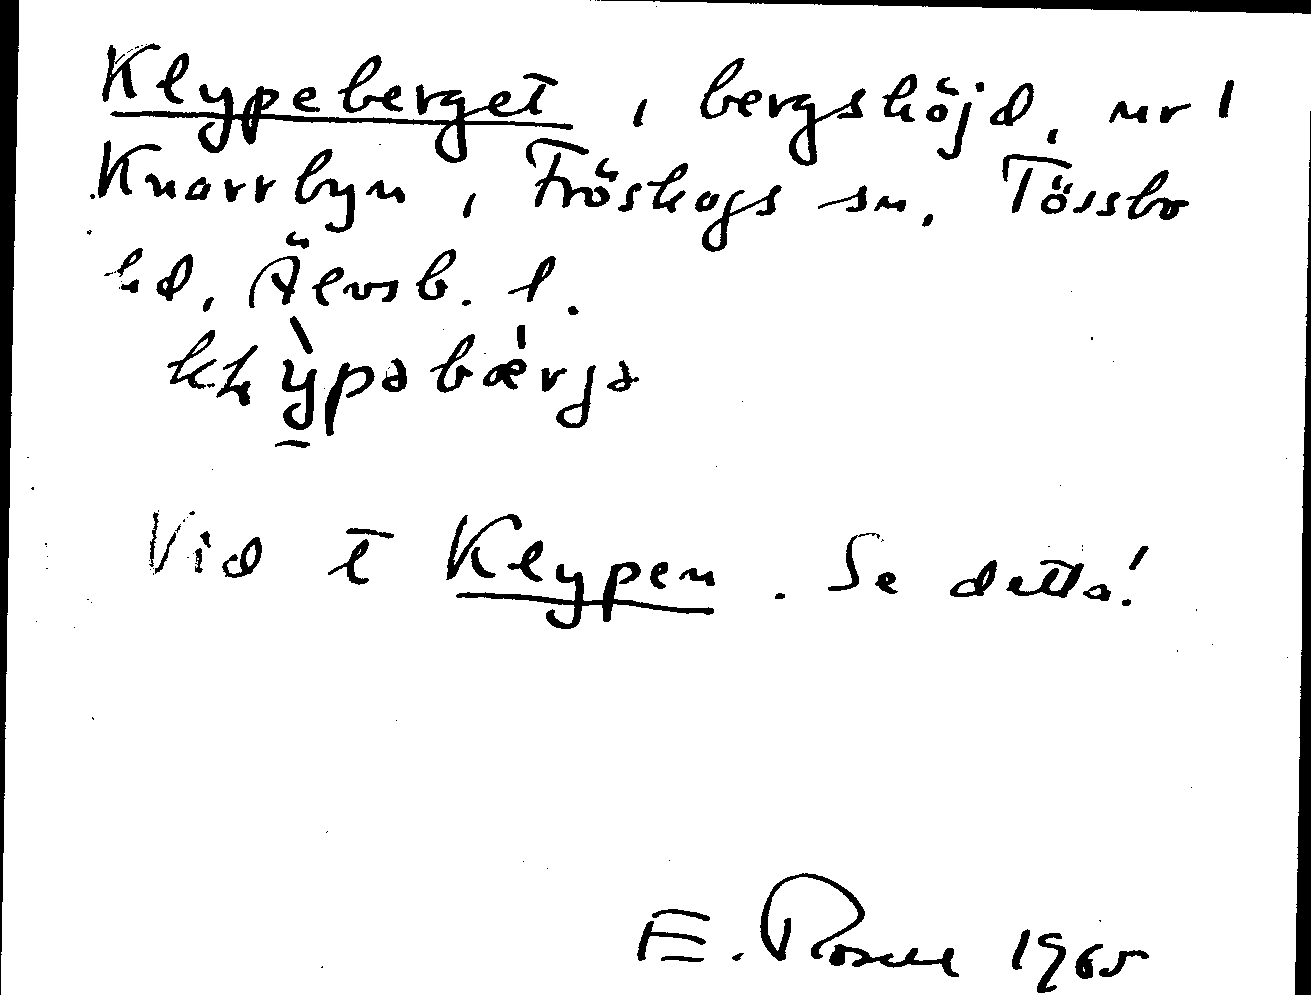 Klypeberget, bergshöjd, nr 1
Knarrbyn, Fröskogs sn, Tössbo
hd, Älvsb. l.
Vid t Klypen. Se detta!
E. Rosell 1965